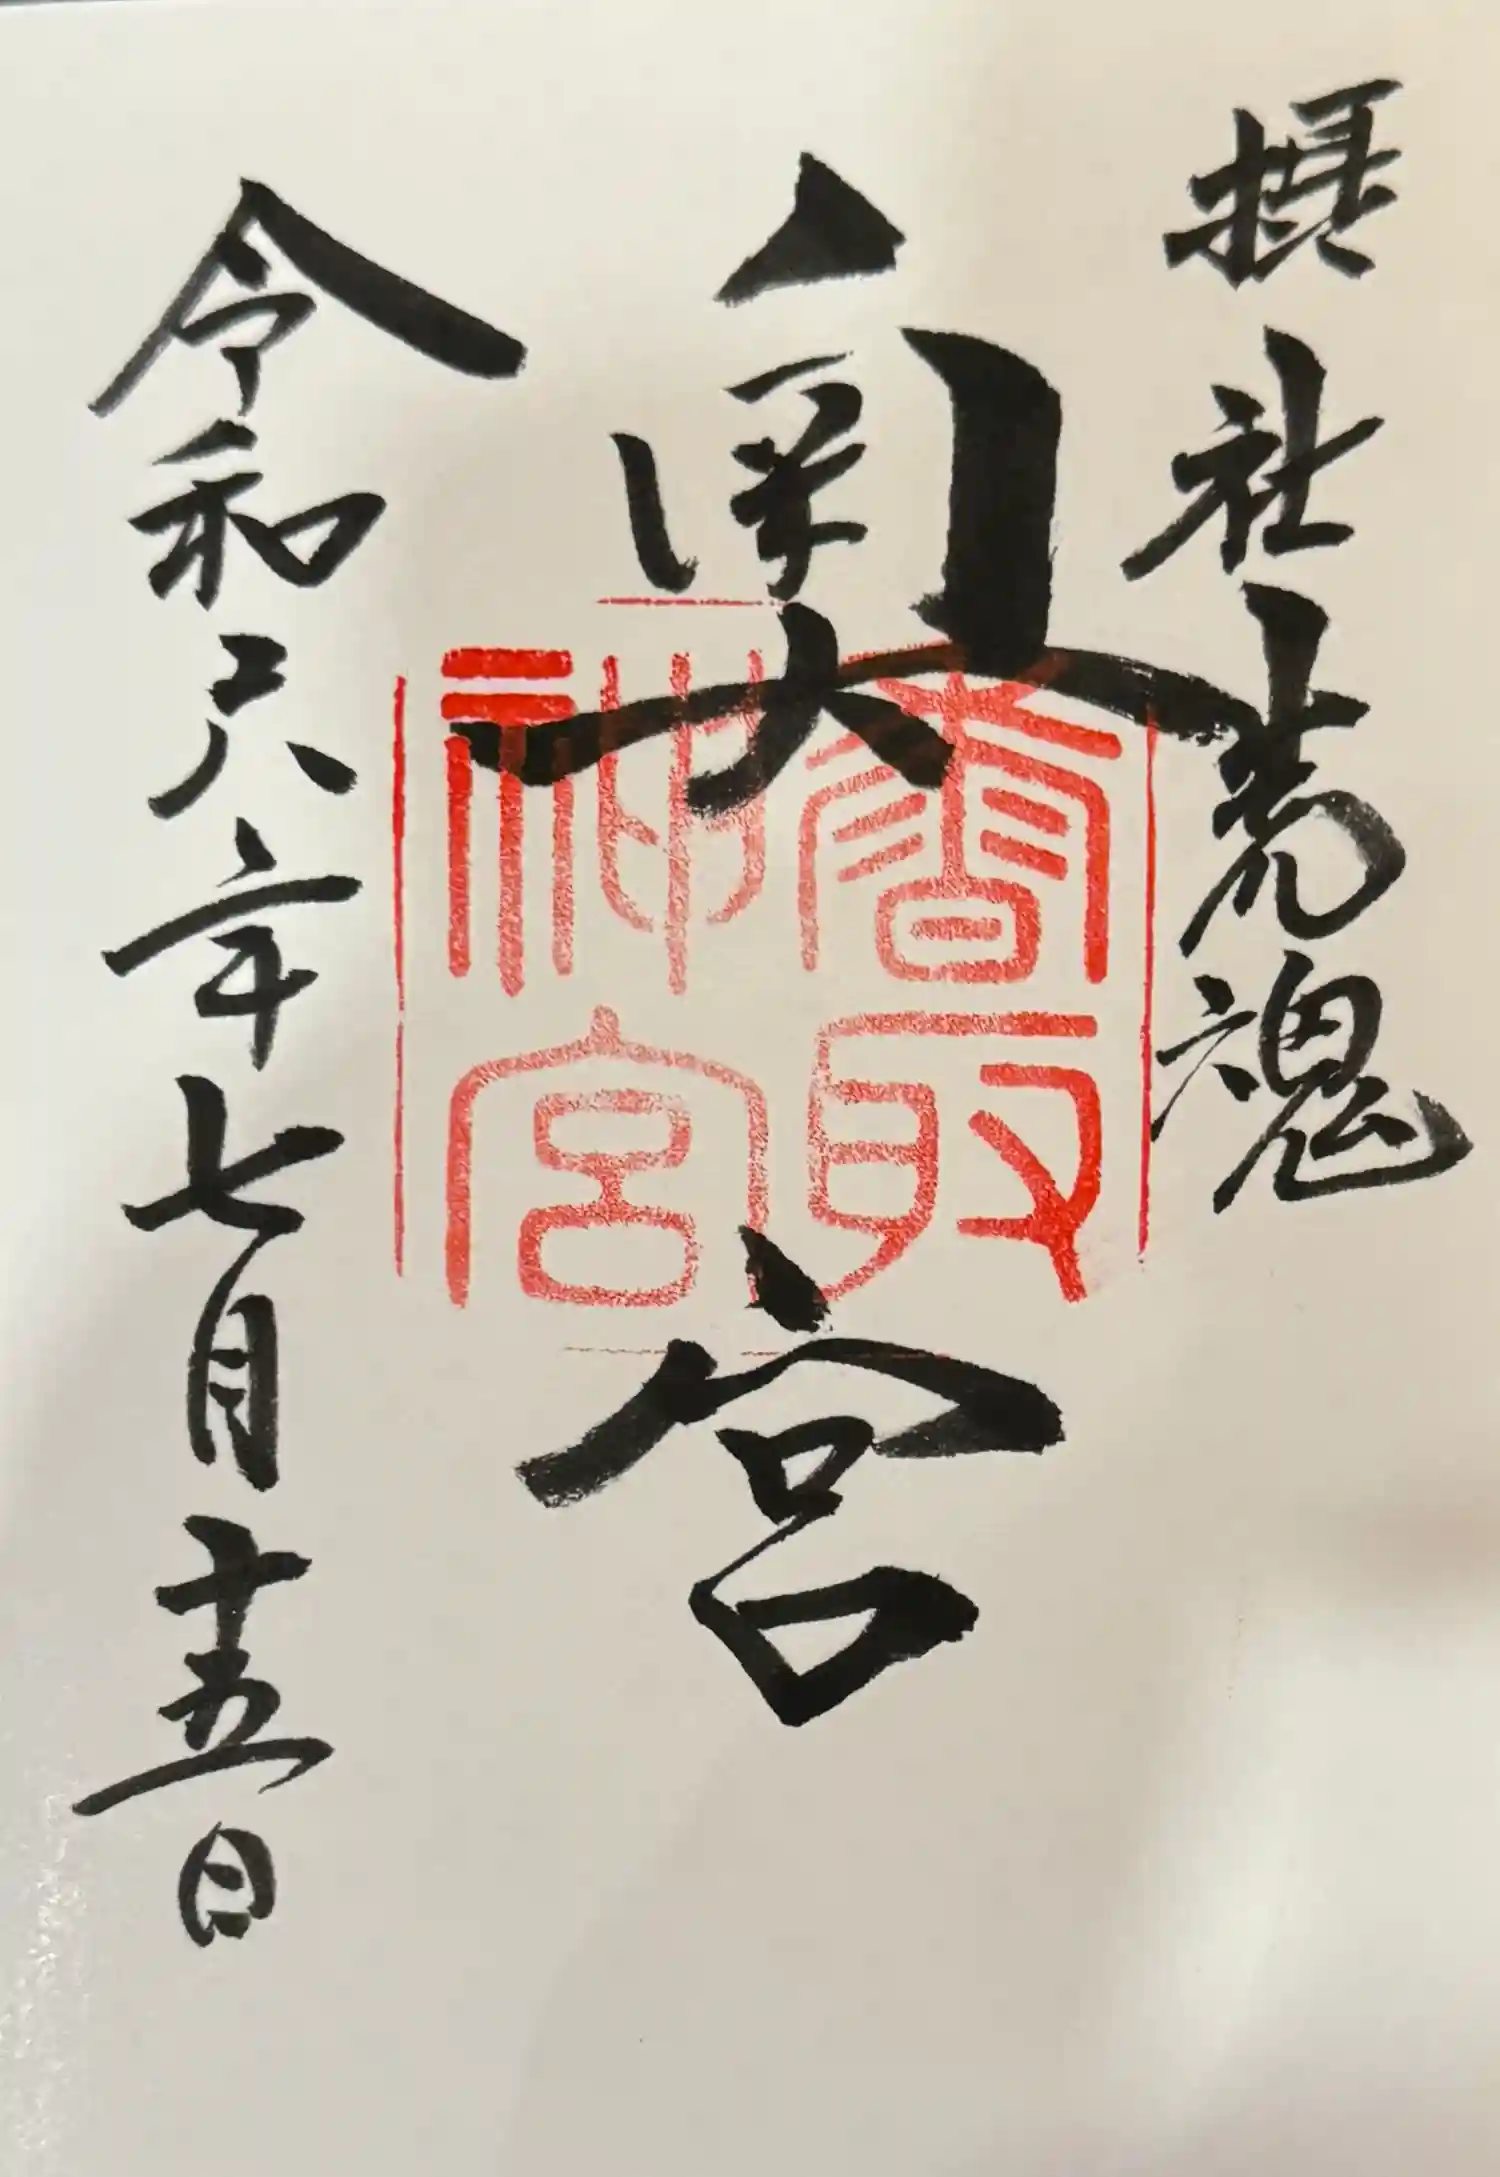 摂社荒魂
奥宮
香取
神宮
令和六年七月十五日